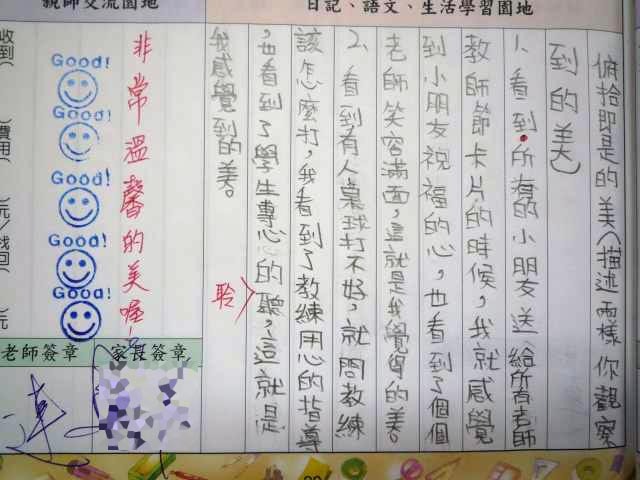 日記、語文、生活學習園地
親師交流園地
俯拾即是的美(描述兩樣你觀察
到的美)
1、看到所有的小朋友送給所有老師
教師節卡片的時候，我就感覺
到小朋友祝福的心，也看到了個個
老師笑容滿面，這就是我覺得的美。
2、看到有人桌球打不好，就問教練
該怎麼打，我看到了教練用心的指導
，也看到了學生專心的聽，這就是
我感覺到的美。
聆
非常溫馨的美喔!
Good!
Good!
Good!
Good!
Good!
家長簽章
老師簽章
收到
費用
元
找回
元